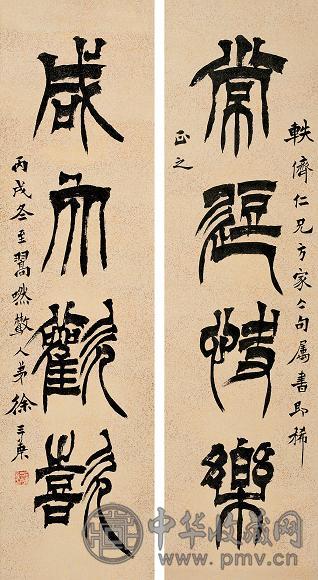 常快樂
軼儕仁兄方家句屬書即稀
正之
咸歡歖
丙戌冬至翯然散人弟徐三庚
中华收藏网
www.pmv.cn